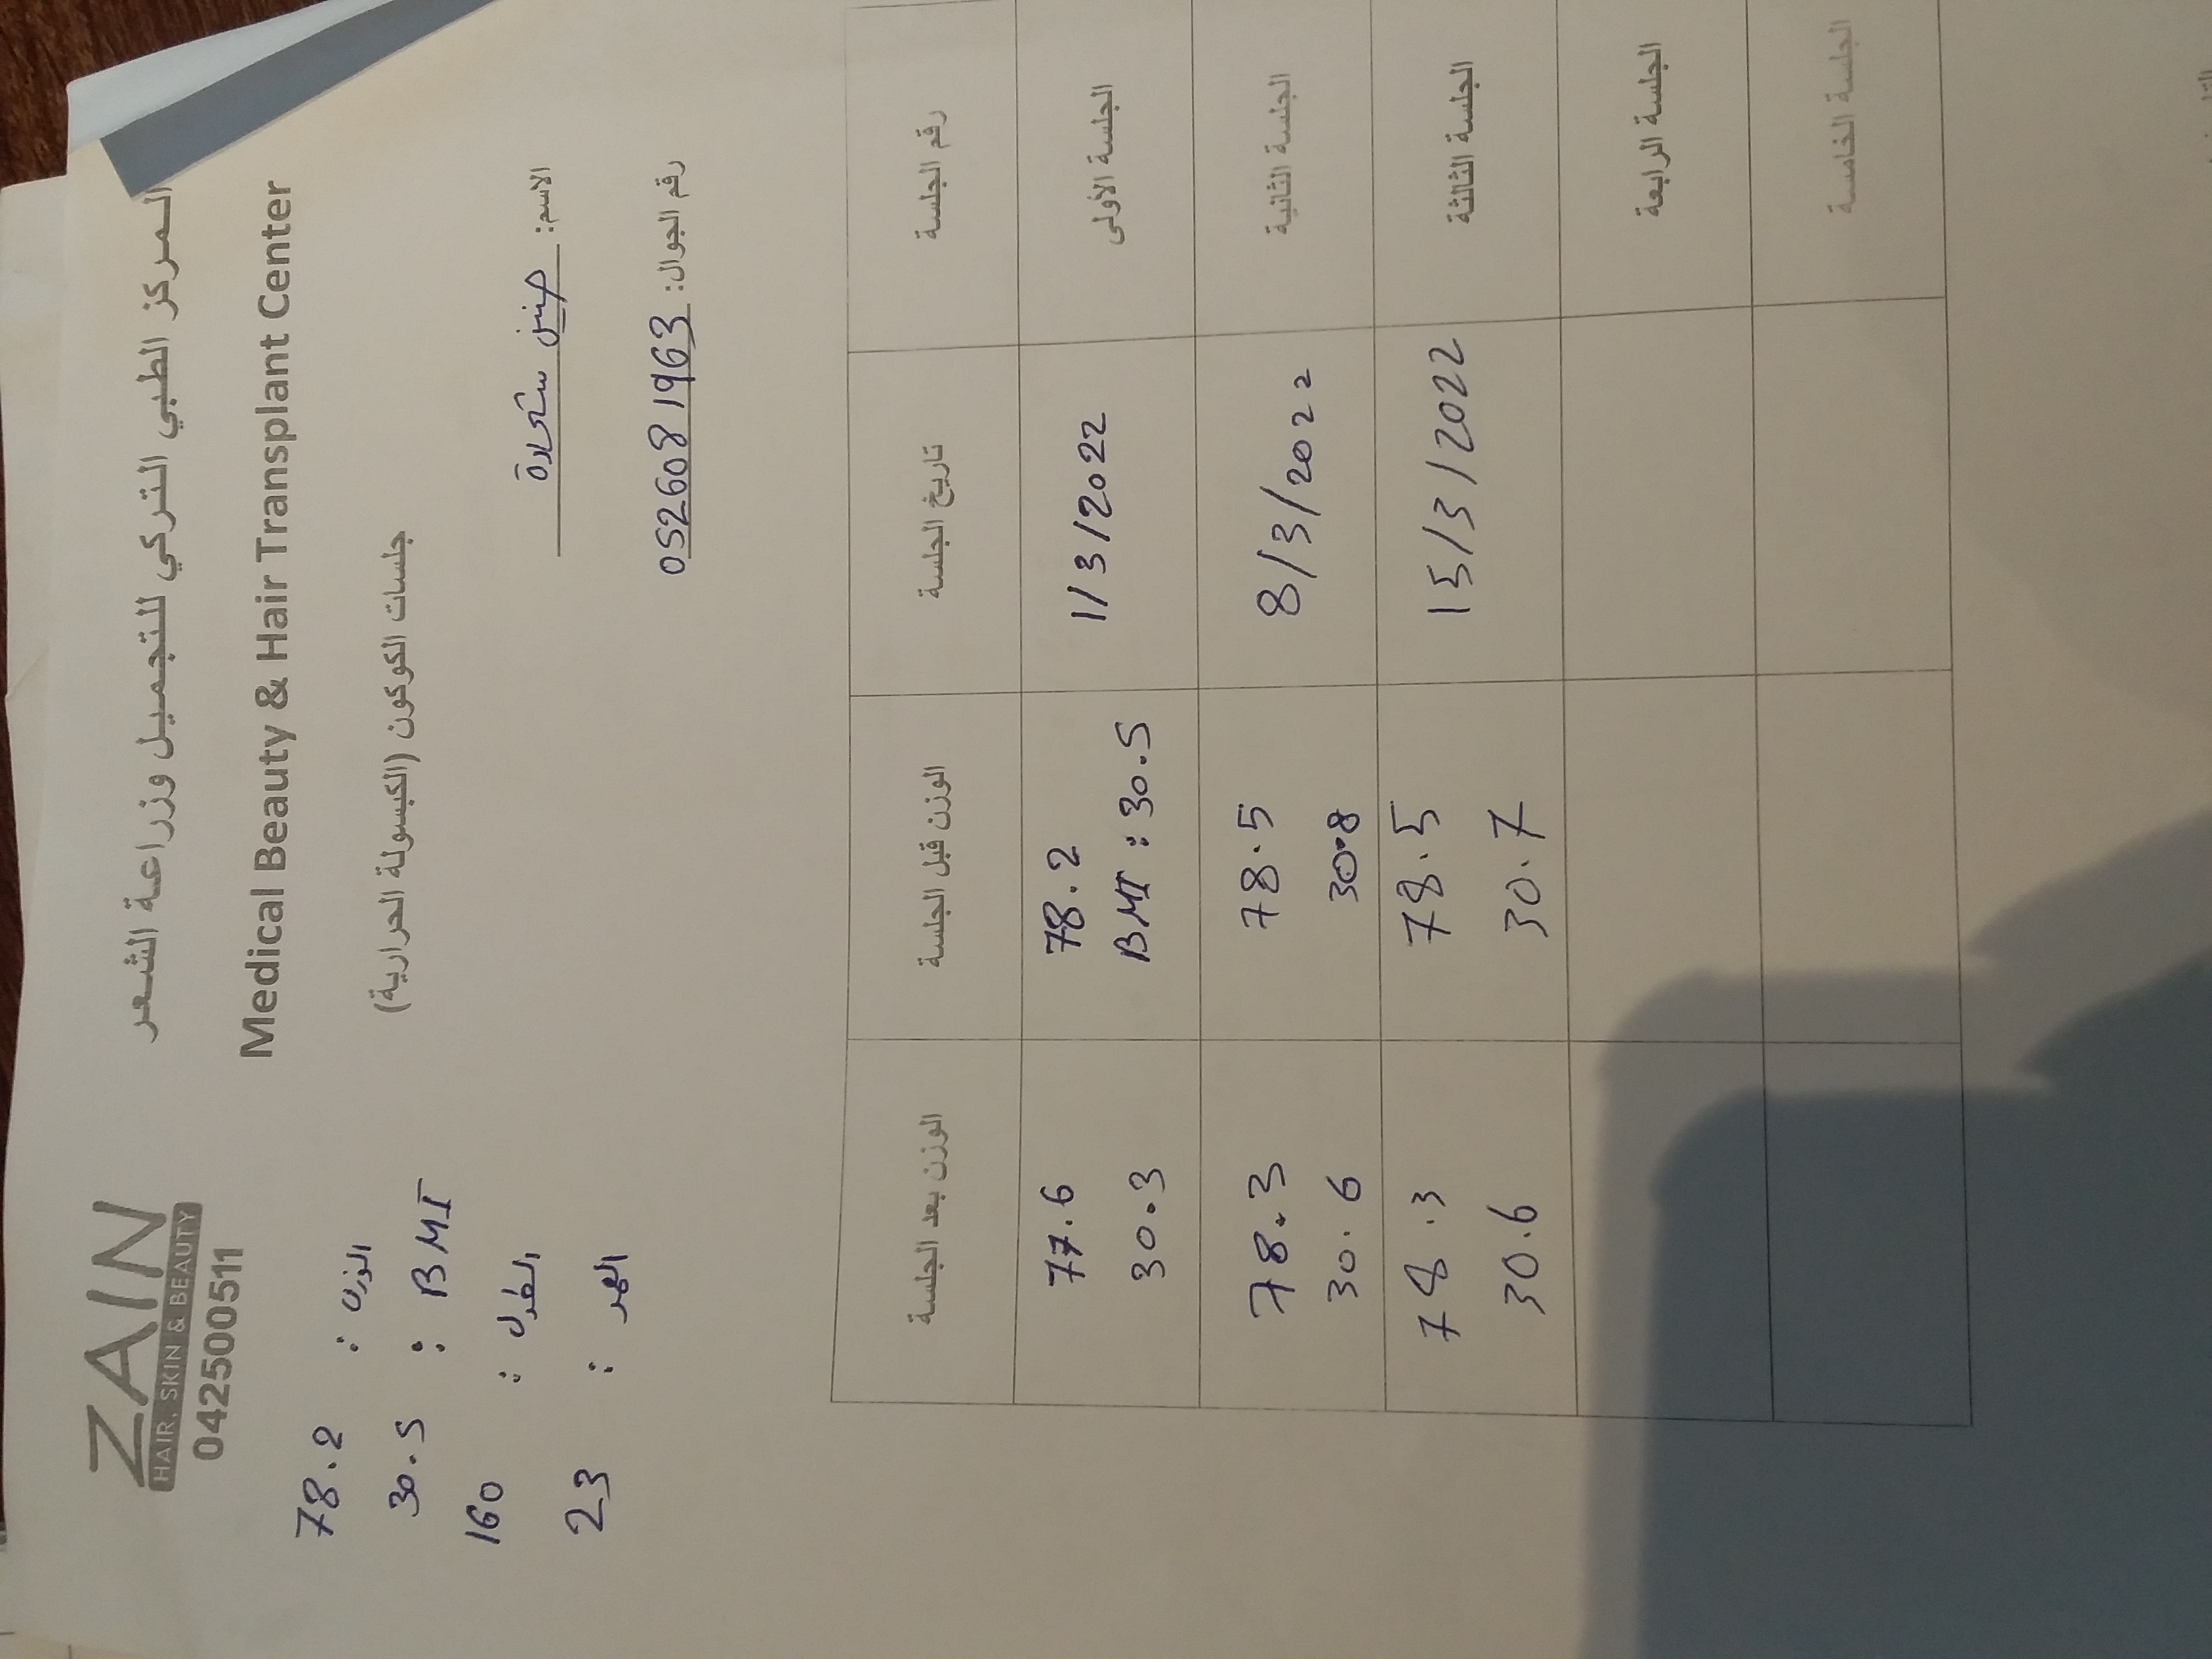 ZAIN
HAIR, SKIN & BEAUTY
042500511
المركز الطبي التركي للتجميل وزراعة الشعر
Medical Beauty & Hair Transplant Center
جلسات الكوكون (الكبسولة الحرارية)
الوزن : 78.2
BMI : 30.5
الطول : 160
العمر : 23
الاسم: حنين
رقم الجوال: 0526081963
رقم الجلسة تاريخ الجلسة الوزن قبل الجلسة الوزن بعد الجلسة
الجلسة الأولى 1/3/2022 78.2 77.6
BMI : 30.5 30.3
الجلسة الثانية 8/3/2022 78.5 78.3
30.8 30.6
الجلسة الثالثة 15/3/2022 78.5 78.3
30.7 30.6
الجلسة الرابعة
الجلسة الخامسة